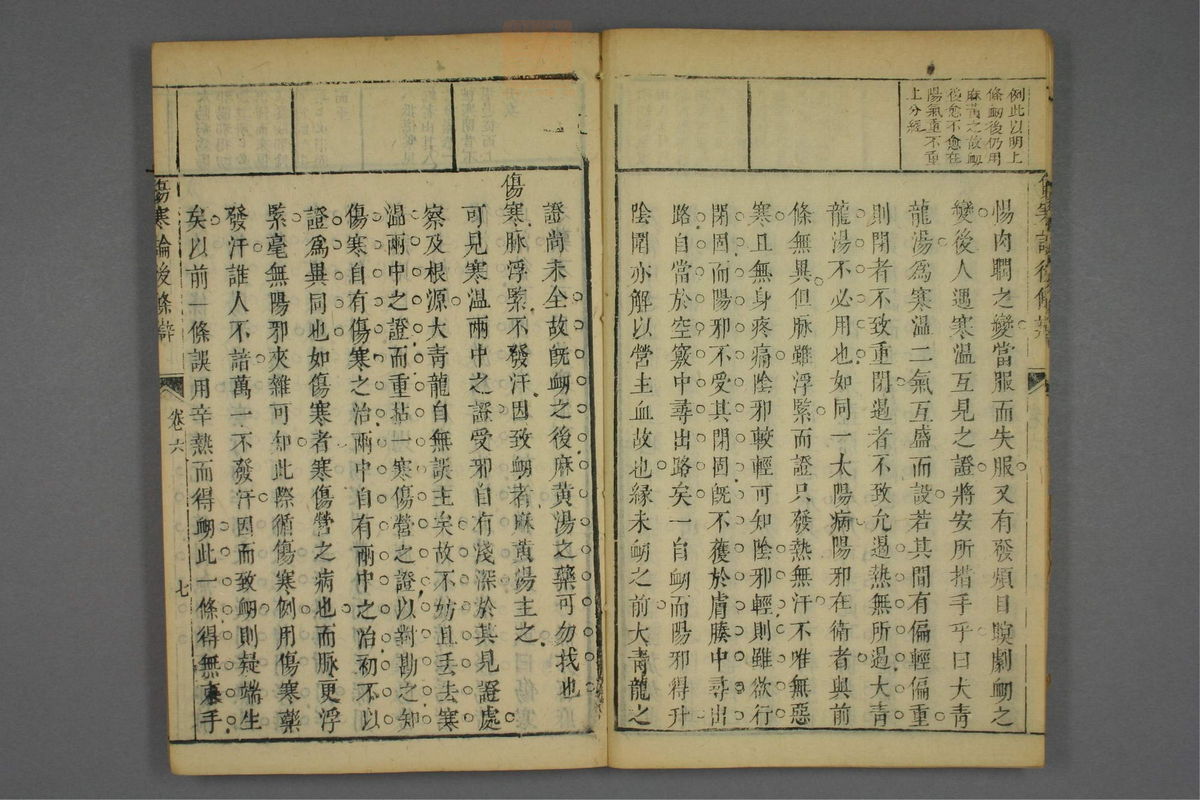 例此以明上
條衂後仍用
麻黃之故衂
後愈不愈在
陽氣重不重
上分經
惕肉瞤之變當服而失服又有發煩目瞑劇衂之
變後人遇寒温互見之證將安所措手乎曰大青
龍湯爲寒温二氣互盛而設若其間有偏輕偏重
則閉者不致重閉遏者不致尤遏熱無所遏大青
龍湯不必用也如同一太陽病陽邪在衛者與前
條無異但脈雖浮緊而證只發熱無汗不唯無惡
寒且無身疼痛陰邪較輕可知陰邪輕則雖欲行
閉固而陽邪不受其閉固旣不獲於膚腠中尋出
路自當於空竅中尋出路矣一自衂而陽邪得升
陰閉亦解以營主血故也縁未衂之前大青龍之
證尚未全故旣衂之後麻黃湯之藥可勿找也
傷寒脈浮緊不發汗因致衂者麻黃湯主之
可見寒温兩中之證受邪自有淺深於其見證處
察及根源大青龍自無誤主矣故不妨且丢去寒
温兩中之證而重拈一寒傷營之證以對勘之知
傷寒自有傷寒之治兩中自有兩中之治初不以
證爲異同也如傷寒者寒傷營之病也而脈更浮
緊毫無陽邪夾雜可知此際循傷寒例用傷寒藥
發汗誰人不諳萬一不發汗因而致衂則疑端生
矣以前一條誤用辛熱而得衂此一條得無束手
傷寒論後條辯
卷六
七